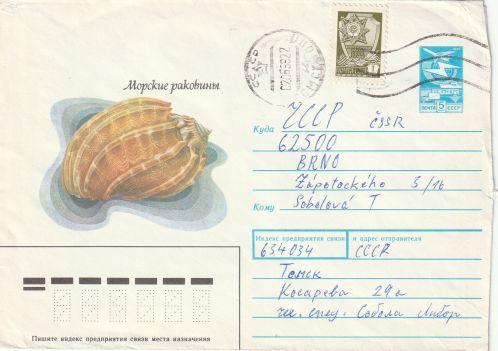 Морские раковины
ПОЧТА СССР
1
ПОЧТА 5 СССР
Куда ЧССР ČSSR
62500
BRNO
Zápotockého 3/16
Кому Sobolová T
Индекс предприятия связи и адрес отправителя
634034 СССР
Томск
Косарева 29а
Собола Либор
Пишите индекс предприятия связи места назначения